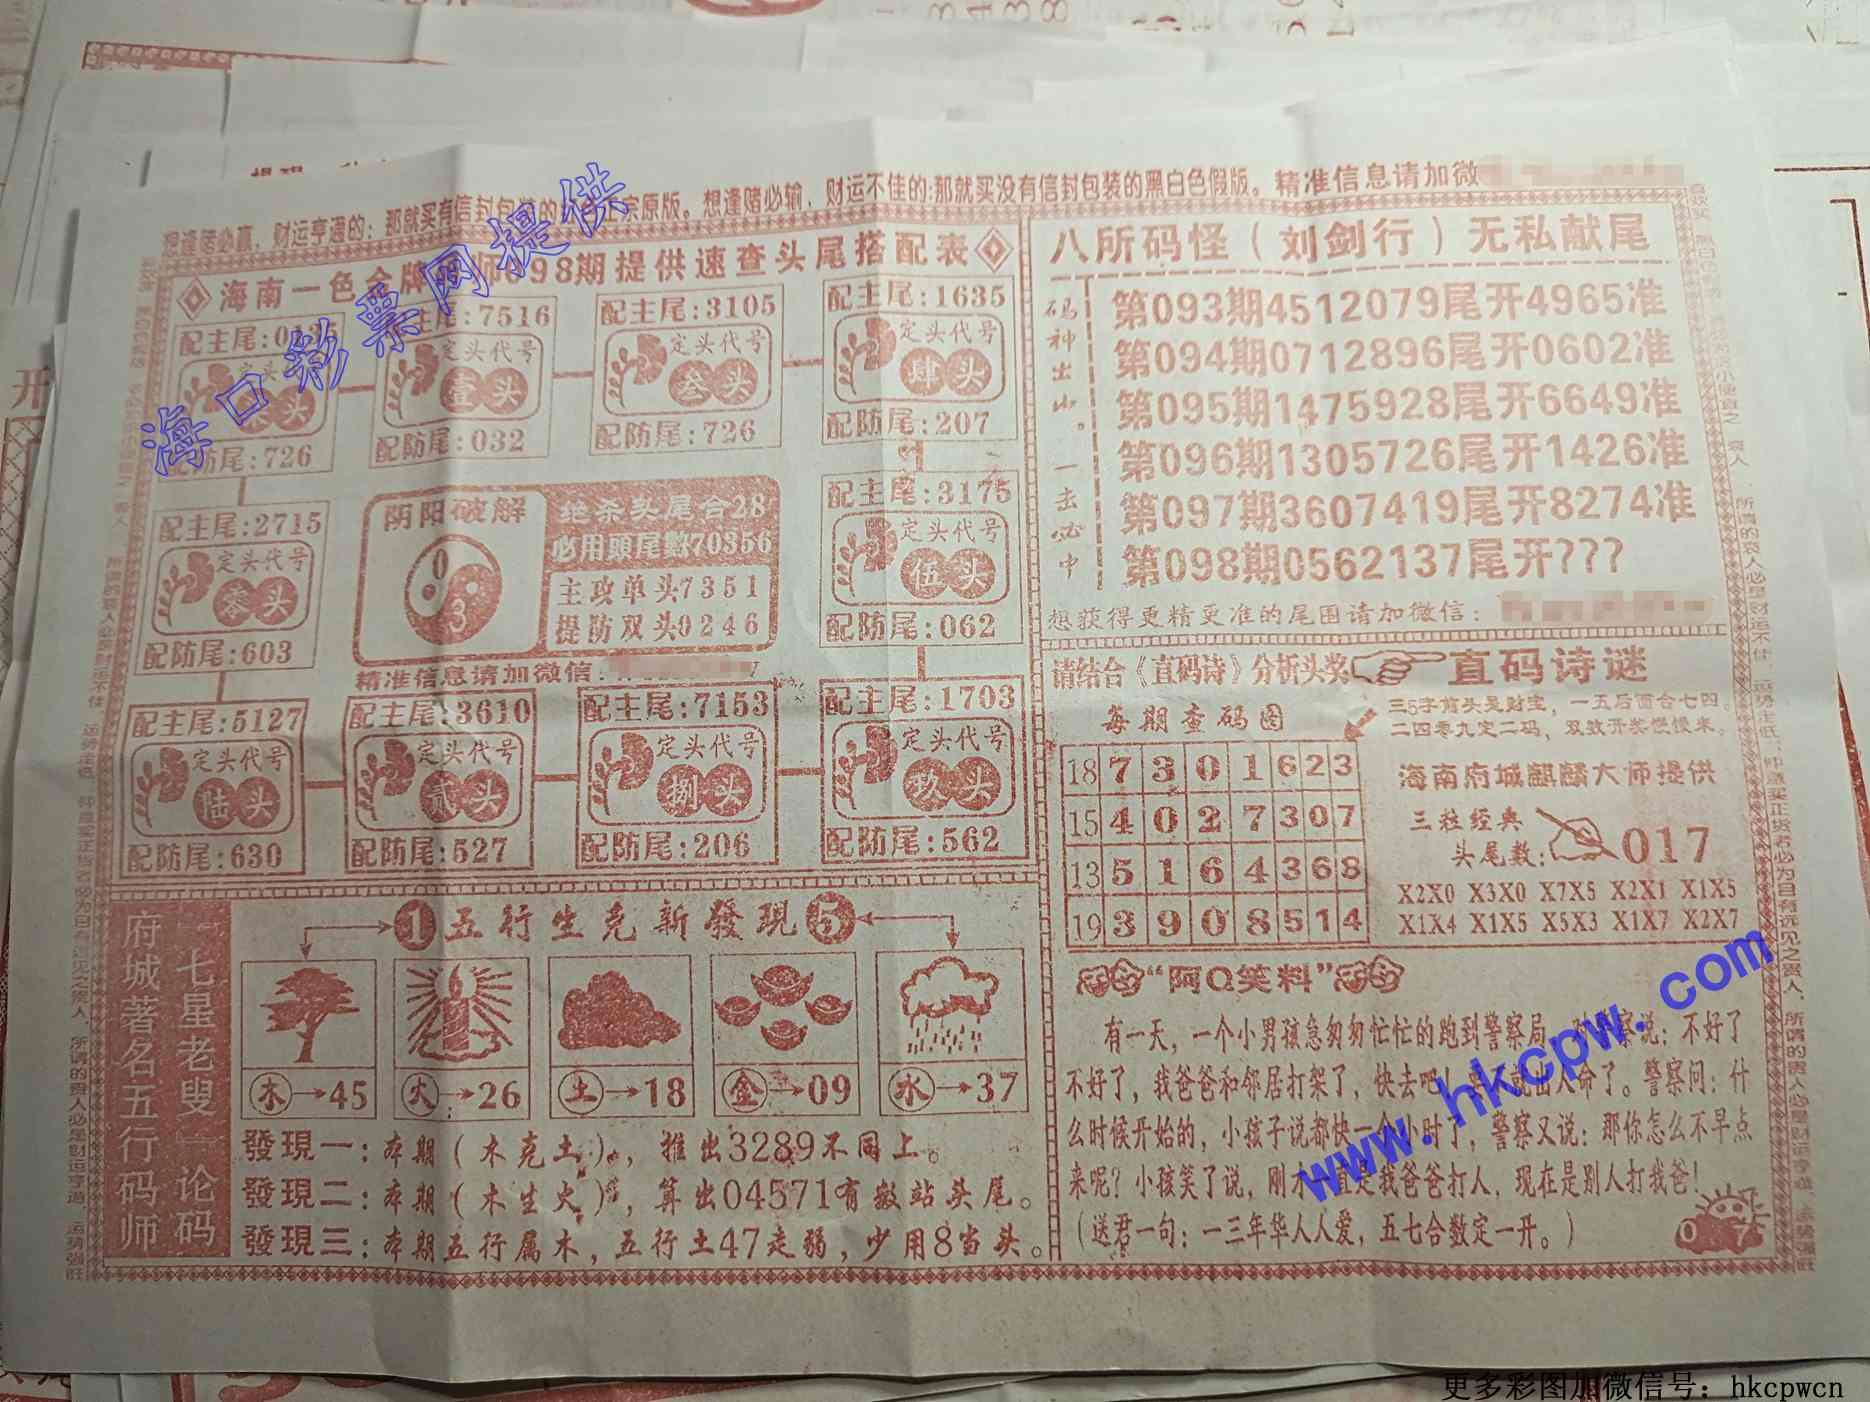 想逢赌必赢，财运亨通的；那就买有信封包装的
宗原版。想逢赌必输，财运不佳的；那就买没有信封包装的黑白色假版。精准信息请加微
海南一色金牌
师098期提供速查头尾搭配表
配主尾:0135
定头代号
头
配防尾:726
主尾:7516
定头代号
壹头
配防尾:032
配主尾:3105
定头代号
叁头
配防尾:726
配主尾:1635
定头代号
肆头
配防尾:207
配主尾:2715
定头代号
零头
配防尾:603
阴阳破解
0
3
绝杀头尾合28
必用頭尾數70356
主攻单头7351
提防双头0246
精准信息请加微信:
配主尾:3175
定头代号
伍头
配防尾:062
配主尾:5127
定头代号
陆头
配防尾:630
配主尾:3610
定头代号
贰头
配防尾:527
配主尾:7153
定头代号
捌头
配防尾:206
配主尾:1703
定头代号
玖头
配防尾:562
府城著名五行码师
七星老叟 论码
1五行生克新發現5
木→45
火→26
土→18
金→09
水→37
發現一：本期（木克土），推出3289不同上。
發現二：本期（木生火），算出04571有搬站头尾。
發現三：本期五行属木，五行土47走弱，少用8当头。
八所码怪（刘剑行）无私献尾
码神出山。一击必中
第093期4512079尾开4965准
第094期0712896尾开0602准
第095期1475928尾开6649准
第096期1305726尾开1426准
第097期3607419尾开8274准
第098期0562137尾开???
想获得更精更准的尾围请加微信：
请结合《直码诗》分析头奖
直码诗谜
每期查码图
三5字前头是财宝，一五后面合七四。
二四零九定二码，双数开奖慢慢来。
18 7 3 0 1 6 2 3
15 4 0 2 7 3 0 7
13 5 1 6 4 3 6 8
19 3 9 0 8 5 1 4
海南府城麒麟大师提供
三粒经典
头尾数:
017
X2X0 X3X0 X7X5 X2X1 X1X5
X1X4 X1X5 X5X3 X1X7 X2X7
“阿Q笑料”
有一天，一个小男孩急匆匆忙忙的跑到警察局，对警察说：不好了
不好了，我爸爸和邻居打架了，快去吧！要
就出人命了。警察问：什
么时候开始的，小孩子说都快一个小时了，警察又说：那你怎么不早点
来呢？小孩笑了说，刚才一直是我爸爸打人，现在是别人打我爸！
（送君一句：一三年华人人爱，五七合数定一开。）
0 7
海口彩票网提供
www.hkcpw.com
更多彩图加微信号：hkcpwcn